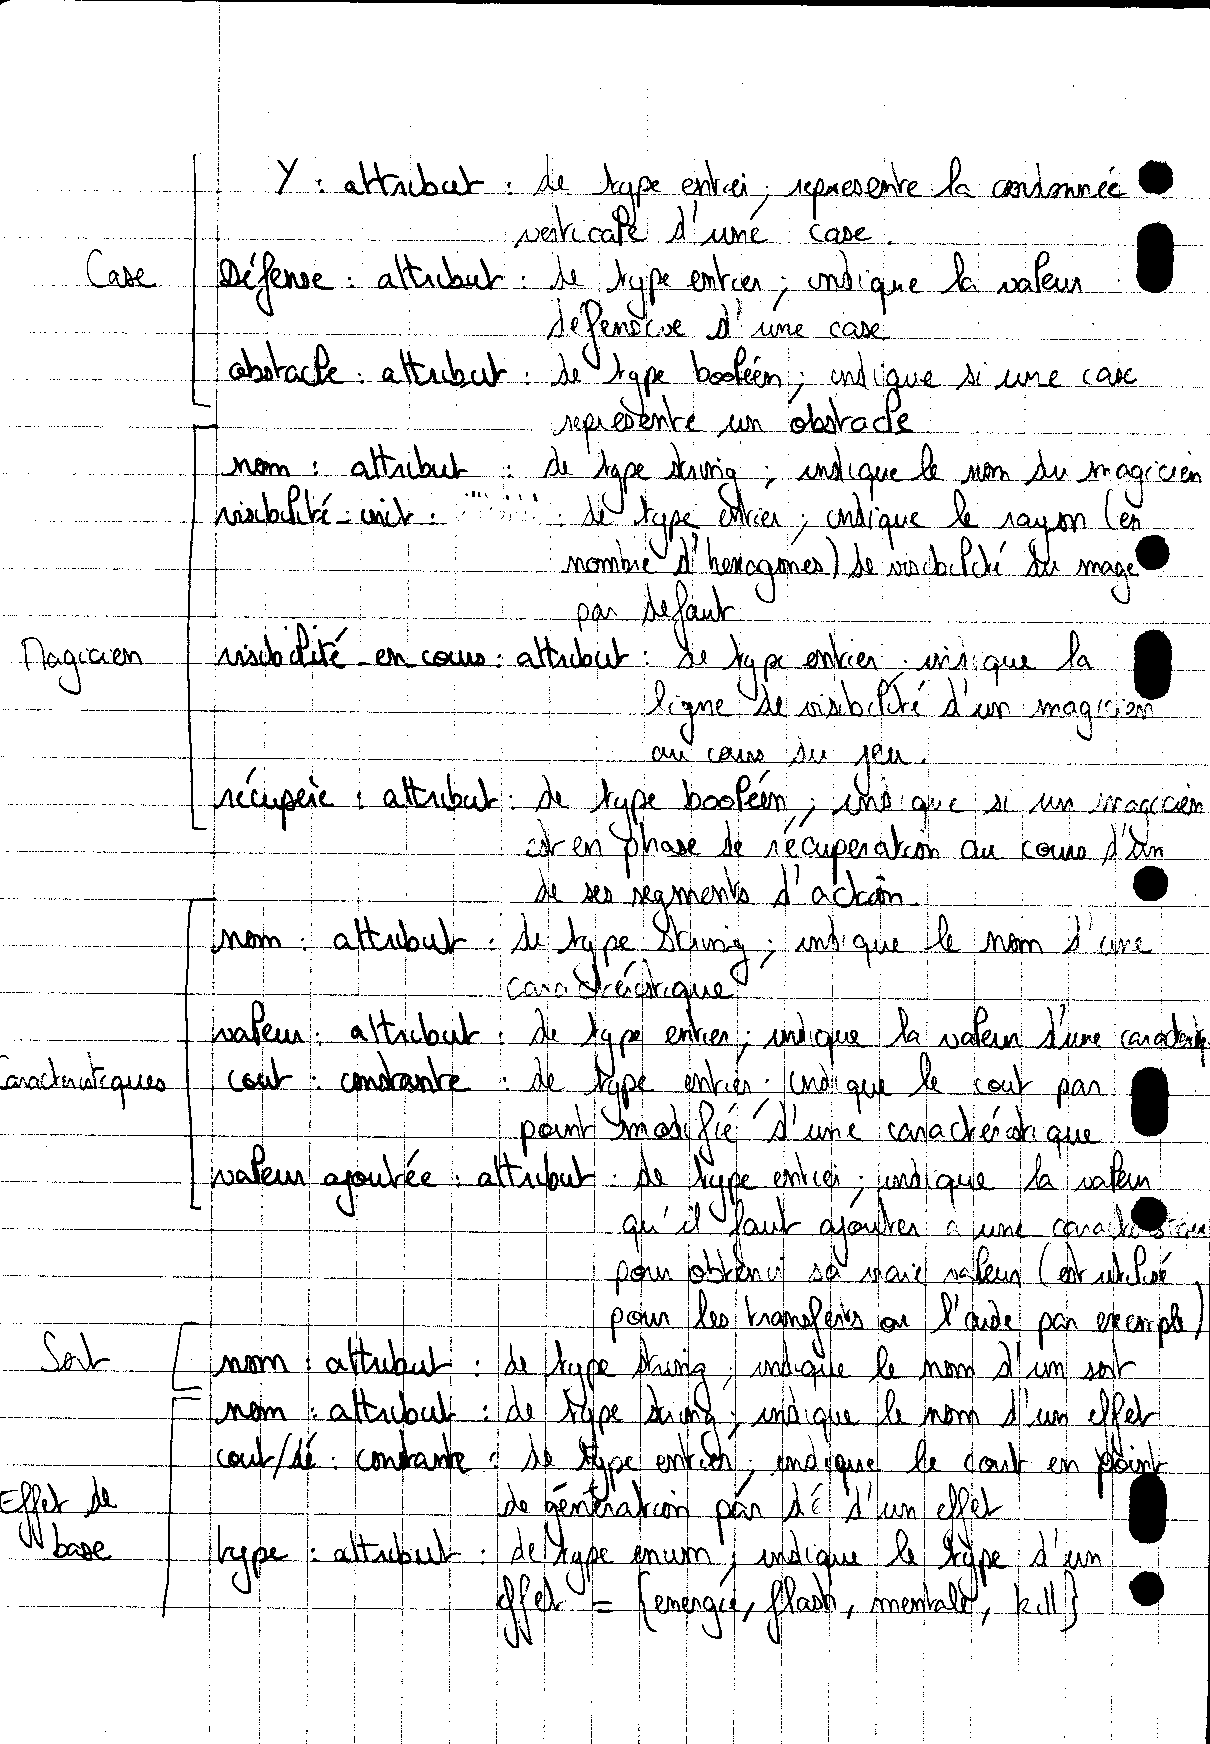 Y : attribut : de type entier ; represente la coordonnée
verticale d'une case.
Case Défense : attribut : de type entier ; indique la valeur
defensive d'une case
obstacle : attribut : de type booléen ; indique si une case
represente un obstacle
nom : attribut : de type string ; indique le nom du magicien
visibilité-init : : de type entier ; indique le rayon (en
nombre d'hexagones) de visibilité du mage
par defaut
Magicien visibilité-en cours : attribut : de type entier ; indique la
ligne de visibilité d'un magicien
au cours du jeu.
récupère : attribut : de type booléen ; indique si un magicien
est en phase de récuperation au cours d'un
de ses segments d'action
nom : attribut : de type String ; indique le nom d'une
caractéristique
valeur : attribut : de type entier ; indique la valeur d'une
Caracteristiques cout : constante : de type entier ; indique le cout par
point modifié d'une caractéristique
valeur ajoutée : attribut : de type entier ; indique la valeur
qu'il faut ajouter a une
pour obtenir sa vraie valeur (est utilisé
pour les transferts ou l'aide par exemple)
Sort nom : attribut : de type string ; indique le nom d'un sort
nom : attribut : de type string ; indique le nom d'un effet
cout/dé : constante : de type entier ; indique le cout en point
Effet de de génération par dé d'un effet
base type : attribut : de type enum ; indique le type d'un
effet = {energie, flash, mentale, kill}